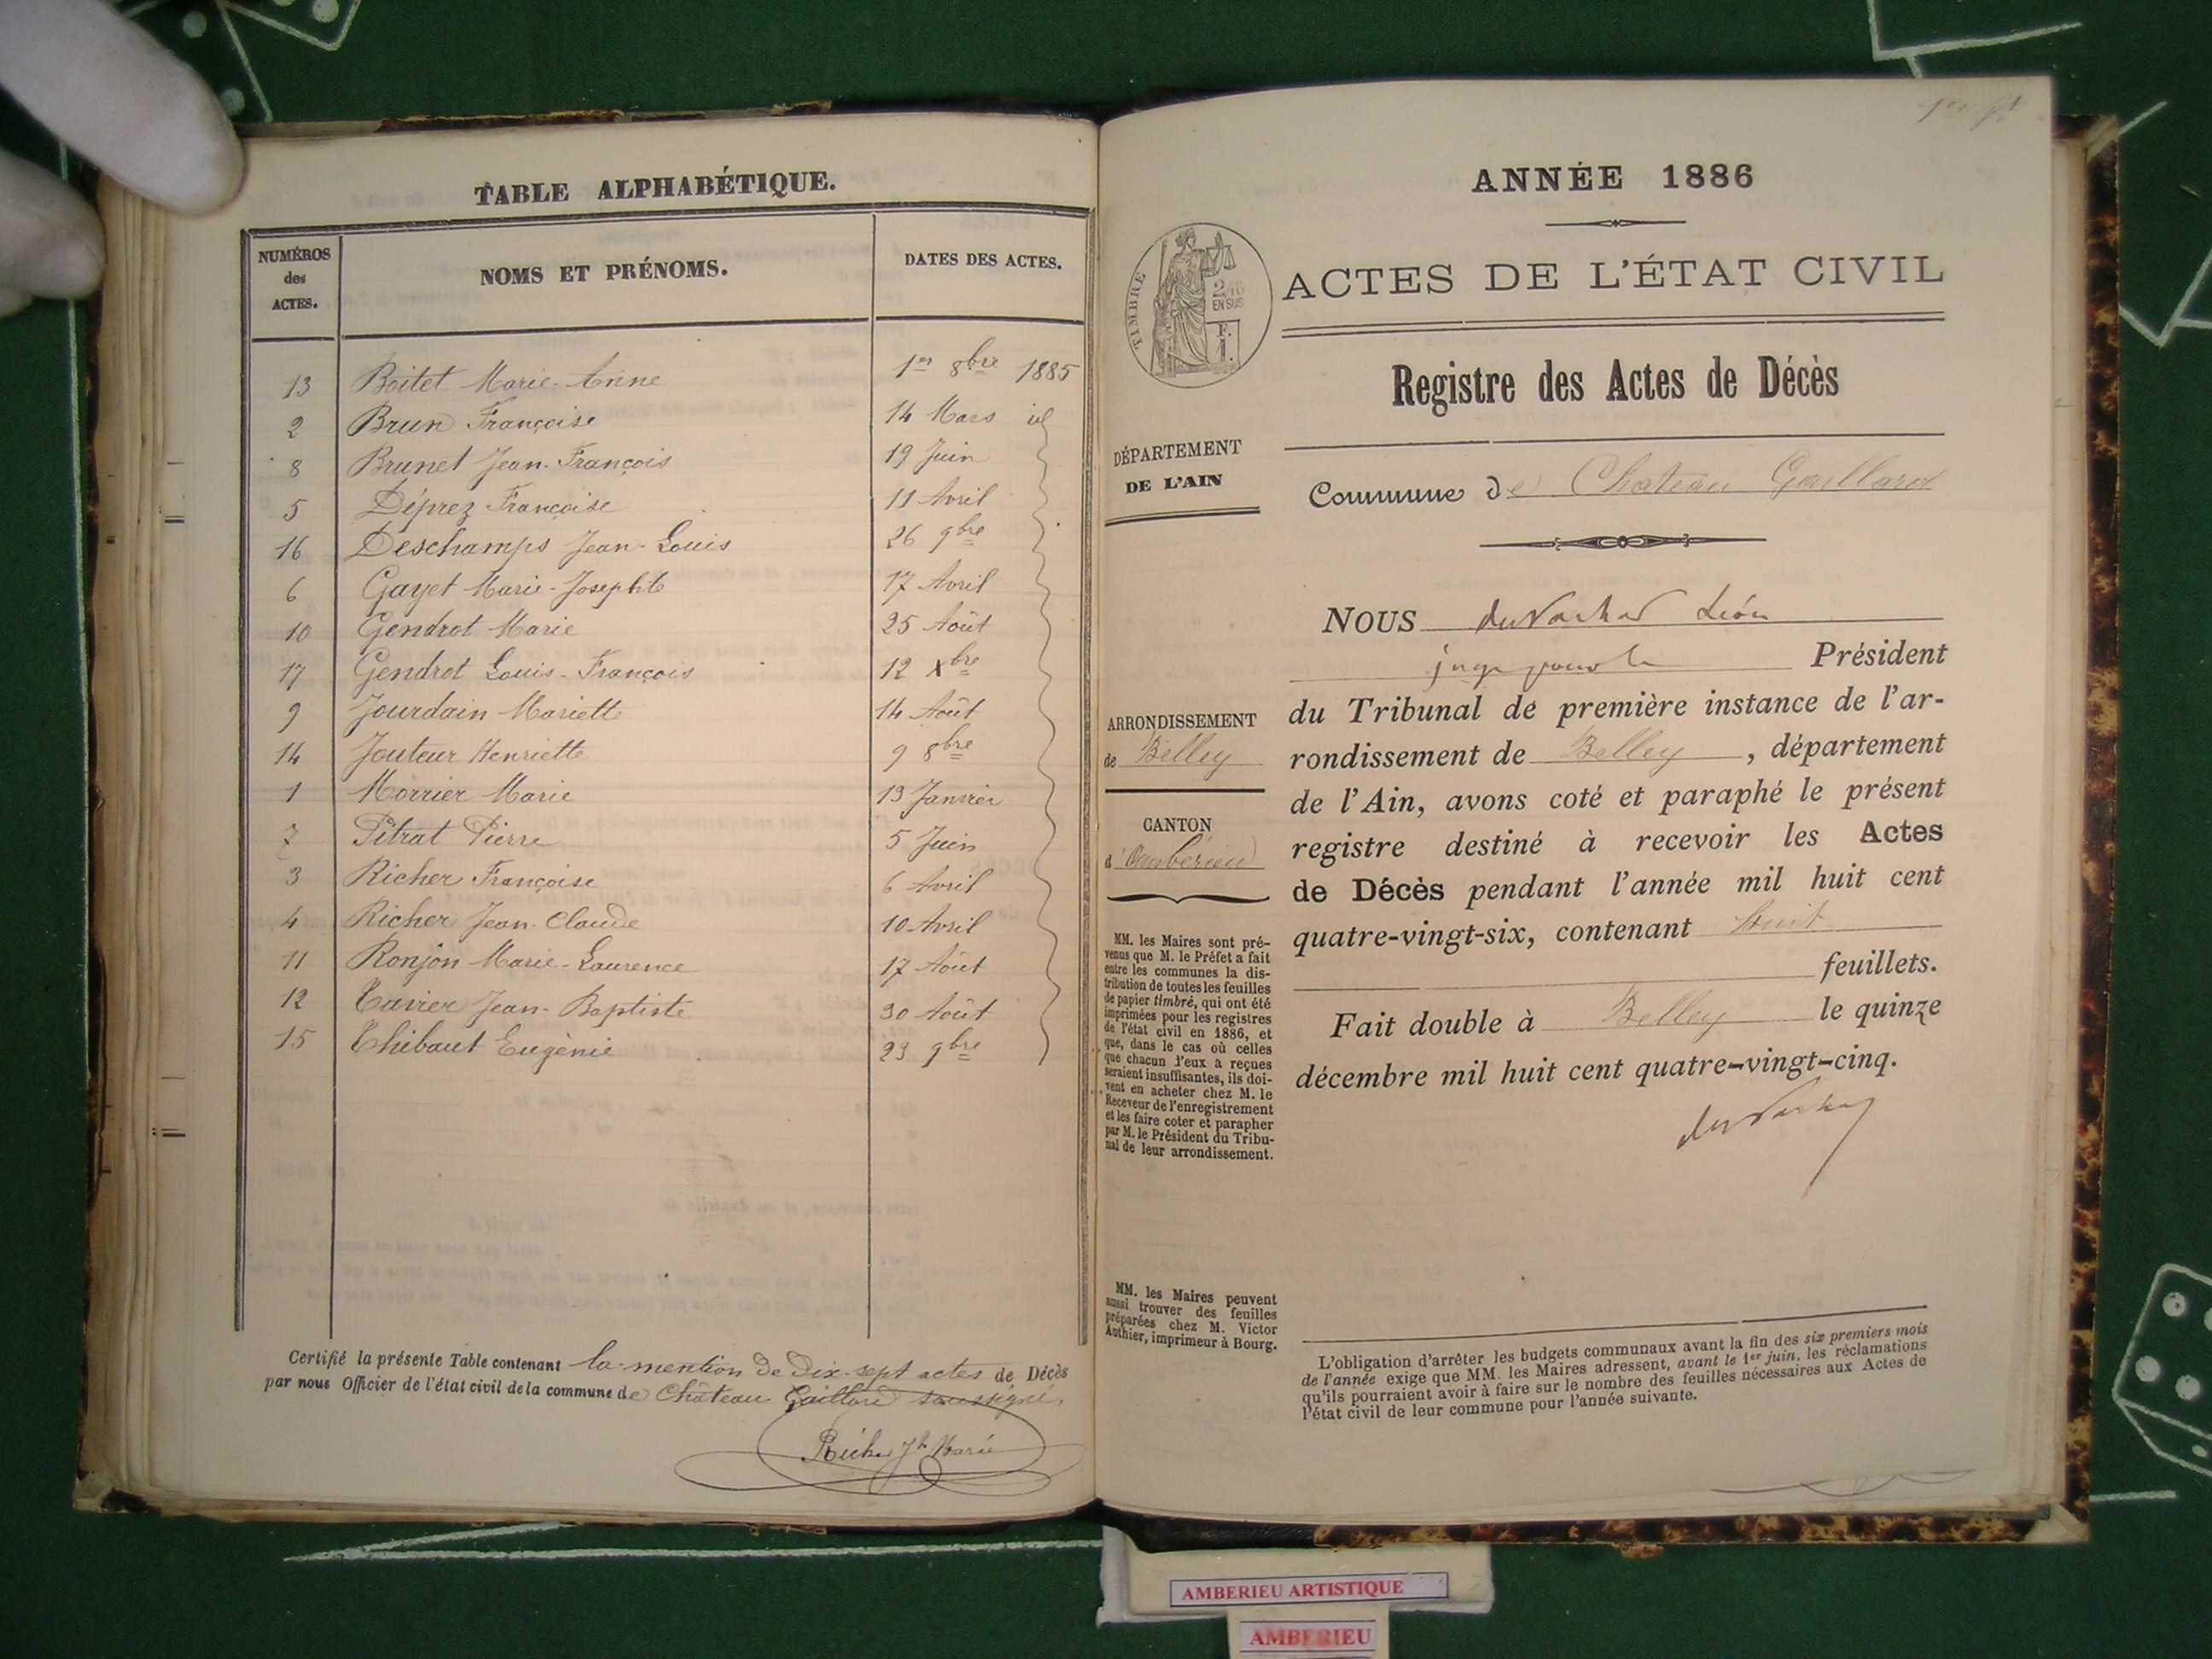 TABLE ALPHABÉTIQUE.
NUMÉROS des ACTES. NOMS ET PRÉNOMS. DATES DES ACTES.
13 Boitet Marie-Anne 1er 8bre 1885
2 Brun Françoise 14 Mars id
8 Brunet Jean-François 19 Juin
5 Déprez Françoise 11 Avril
16 Deschamps Jean-Louis 26 9bre
6 Gayet Marie-Josephte 17 Avril
10 Gendrot Marie 25 Août
17 Gendrot Louis-François 12 Xbre
9 Jourdain Mariette 14 Août
14 Jouteur Henriette 9 8bre
1 Morrier Marie 13 Janvier
7 Pitrat Pierre 5 Juin
3 Richer Françoise 6 Avril
4 Richer Jean-Claude 10 Avril
11 Ronjon Marie-Laurence 17 Août
12 Tavier Jean-Baptiste 30 Août
15 Thibaut Eugénie 23 9bre
Certifié la présente Table contenant la mention de Dix-sept actes de Décès
par nous Officier de l'état civil de la commune de Château Gaillard soussigné,
ANNÉE 1886
TIMBRE
2/10
EN SUS
F.
1.
ACTES DE L'ÉTAT CIVIL
Registre des Actes de Décès
DÉPARTEMENT
DE L'AIN
Commune de Chateau Gaillard
ARRONDISSEMENT
de Belley
CANTON
d'Ambérieu
MM. les Maires sont pré-
venus que M. le Préfet a fait
entre les communes la dis-
tribution de toutes les feuilles
de papier timbré, qui ont été
imprimées pour les registres
de l'état civil en 1886, et
que, dans le cas où celles
que chacun d'eux a reçues
seraient insuffisantes, ils doi-
vent en acheter chez M. le
Receveur de l'enregistrement
et les faire coter et parapher
par M. le Président du Tribu-
nal de leur arrondissement.
MM. les Maires peuvent
aussi trouver des feuilles
préparées chez M. Victor
Authier, imprimeur à Bourg.
NOUS Léon
juge Président
du Tribunal de première instance de l'ar-
rondissement de Belley, département
de l'Ain, avons coté et paraphé le présent
registre destiné à recevoir les Actes
de Décès pendant l'année mil huit cent
quatre-vingt-six, contenant huit
feuillets.
Fait double à Belley le quinze
décembre mil huit cent quatre-vingt-cinq.
L'obligation d'arrêter les budgets communaux avant la fin des six premiers mois
de l'année exige que MM. les Maires adressent, avant le 1er juin, les réclamations
qu'ils pourraient avoir à faire sur le nombre des feuilles nécessaires aux Actes de
l'état civil de leur commune pour l'année suivante.
AMBERIEU ARTISTIQUE
AMBERIEU